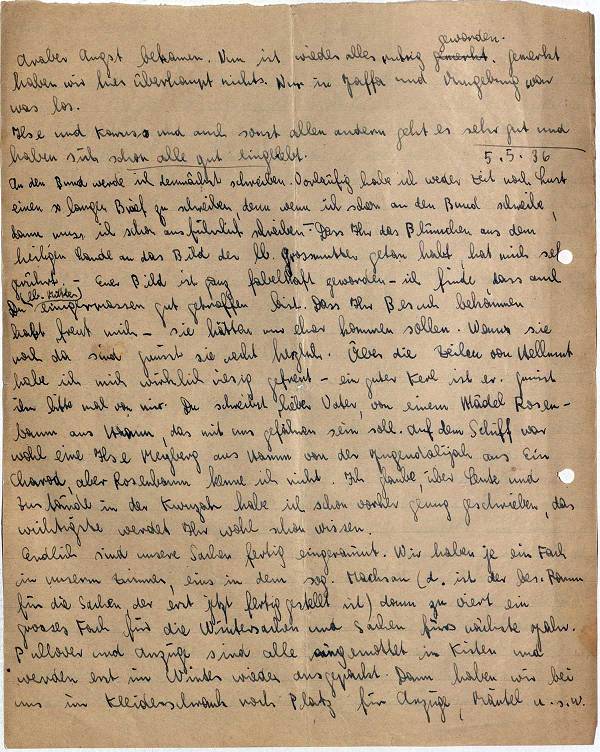 geworden.
Araber Angst bekamen. Nun ist wieder alles ruhig gemerkt. Gemerkt
haben wir hier überhaupt nichts. Nur in Jaffa und Umgebung war
was los.
Ilse und Karuso und auch sonst allen andern geht es sehr gut und
haben sich schon alle gut eingelebt.
5.5.36
An den Bund werde ich demnächst schreiben. Vorläufig habe ich weder Zeit noch Lust
einen so langen Brief zu schreiben denn wenn ich schon an den Bund schreibe,
dann muss ich schon ausführlich schreiben. - Dass Ihr das Blümchen aus dem
heiligen Lande an das Bild der lb. Grossmutter getan habt, hat mich sehr
gerührt. - Euer Bild ist ganz fabelhaft geworden - ich finde dass auch
(lb. Mutter)
Du einigermassen gut getroffen bist. Dass Ihr Besuch bekommen
habt freut mich - sie hätten nur eher kommen sollen. Wenn sie
noch da sind grüsst sie recht herzlich. Über die Zeilen von Hellmut
habe ich mich wirklich riesig gefreut - ein guter Kerl ist er. Grüsst
ihn bitte mal von mir. Du schreibst, lieber Vater, von einem Mädel Rosen-
baum aus Hamm, das mit uns gefahren sein soll. Auf dem Schiff war
wohl eine Ilse Meyberg aus Hamm von der Jugendalijah aus Ein
Charod, aber Rosenbaum kenne ich nicht. Ich glaube, über Leute und
Zustände in der Kwuzah habe ich schon vorher genug geschrieben, das
wichtigste werdet Ihr wohl schon wissen.
Endlich sind unsere Sachen fertig eingeräumt. Wir haben je ein Fach
in unserm Zimmer, eins in dem sog. Machsan (d. ist der bes. Raum
für die Sachen, der erst jetzt fertiggestellt ist) dann zu viert ein
grosses Fach für die Wintersachen und Sachen fürs nächste Jahr.
Pullover und Anzüge sind alle eingemottet in Kisten und
werden erst im Winter wieder ausgepackt. Dann haben wir bei
uns im Kleiderschrank noch Platz für Anzüge, Mäntel u.s.w.